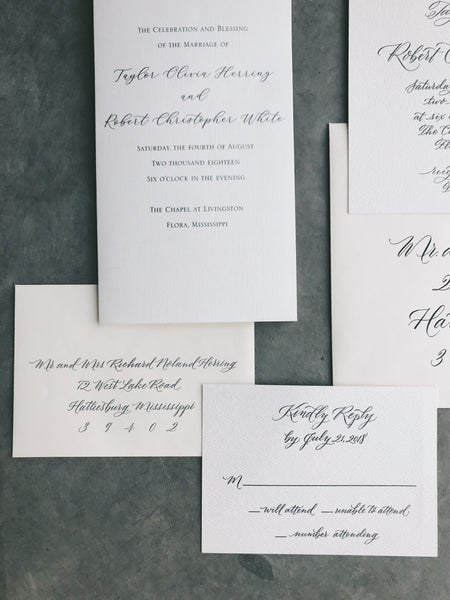 The Celebration and Blessing
of the Marriage of
Taylor Olivia Herring
and
Robert Christopher White
Saturday, the fourth of August
Two thousand eighteen
Six o'clock in the evening
The Chapel at Livingston
Flora, Mississippi
Robert C
Saturday
two
at six o
The C
Mr. a
3
Mr and Mrs Richard Noland Herring
72 West Lake Road
Hattiesburg, Mississippi
3 9 4 0 2
Kindly Reply
by July 21, 2018
M
will attend unable to attend
number attending